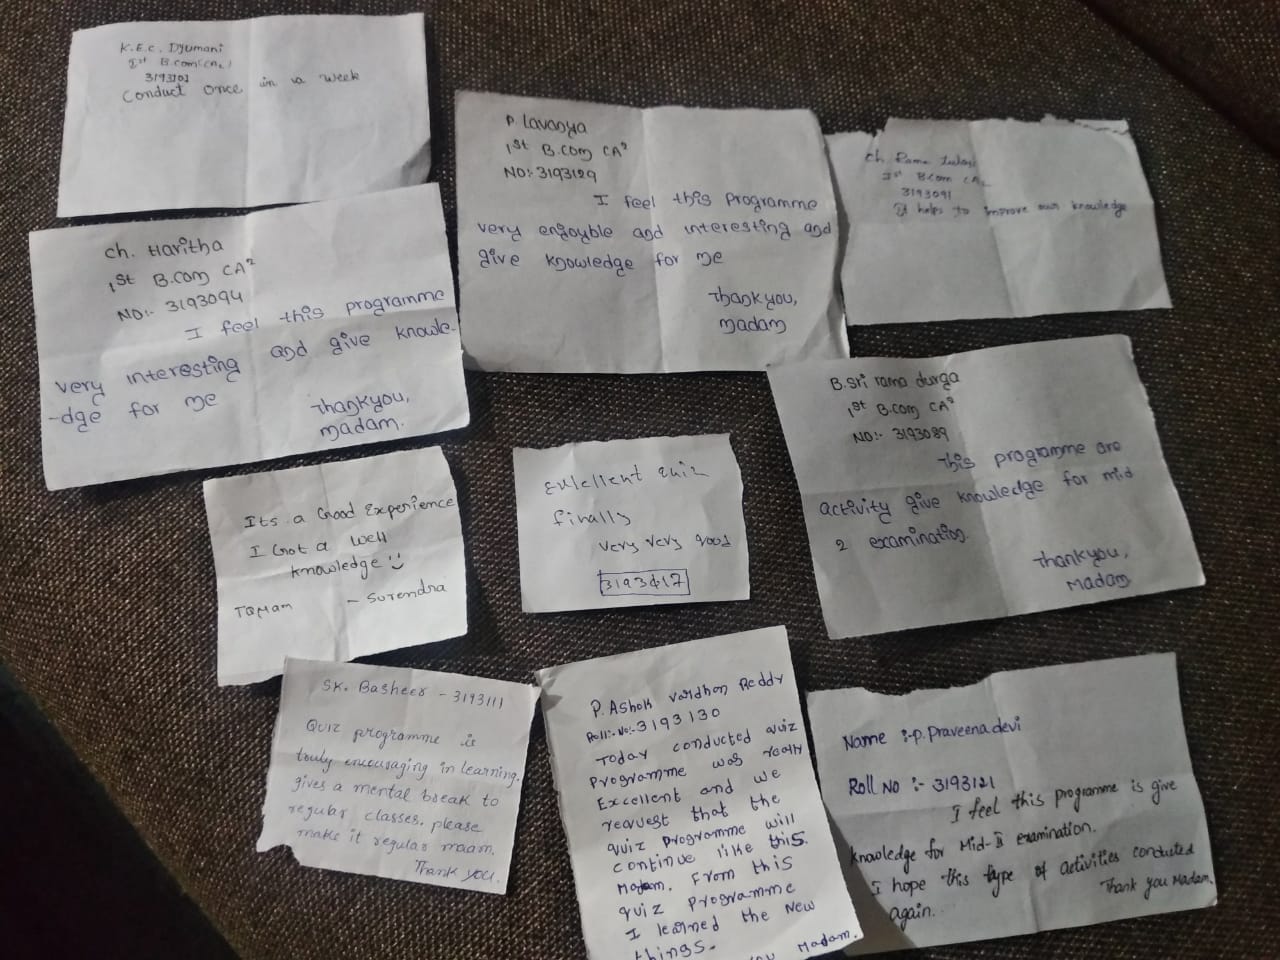 K.E.C. Dyumani
Ist B.com(CA2)
3193103
Conduct once in a week
P. Lavanya
1st B.com CA2
NO:- 3193129
I feel this programme
very enjoyble and interesting and
give knowledge for me
Thankyou,
Madam
ch Rama
Ist B.com CA2
3193091
It helps to improve our knowledge
ch. Haritha
1st B.com CA2
NO:- 3193094
I feel this programme
very interesting and give knowle-
-dge for me
Thankyou,
Madam.
B.sri rama durga
1st B.com CA2
NO:- 3193089
This programme are
activity give knowledge for mid
2 examination.
Thankyou,
Madam
Its a Good Experience
I Got a well
knowledge
TQ Mam - Surendra
Exlellent quiz
finally
very very good
SK. Basheer - 3193111
Quiz programme is
truly encouraging in learning.
gives a mental break to
regular classes. please
make it regular maam.
Thank you.
P. Ashok vardhan Reddy
Roll:-No:- 3193130
Today conducted quiz
programme was really
Excellent and we
request that the
quiz programme will
continue like this.
Madam. From this
quiz programme
I learned the New
things.
Madam.
Name :- P. Praveena devi
Roll No :- 3193121
I feel this programme is give
knowledge for Mid-II examination.
I hope this type of activities conducted
again.. Thank you Madam.